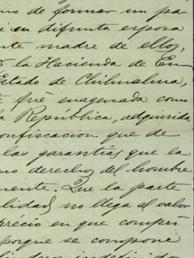 no de formar un pa
su difunta esposa
nte madre de ellos,
la Hacienda de En
Estado de Chihuahua,
fué enagenada como
la República, adquirida
confiscacion que de
las garantías que la
los derechos del hombre
mente. Que la parte
lidad, no llega al valor
précio en que compró
porque se compone